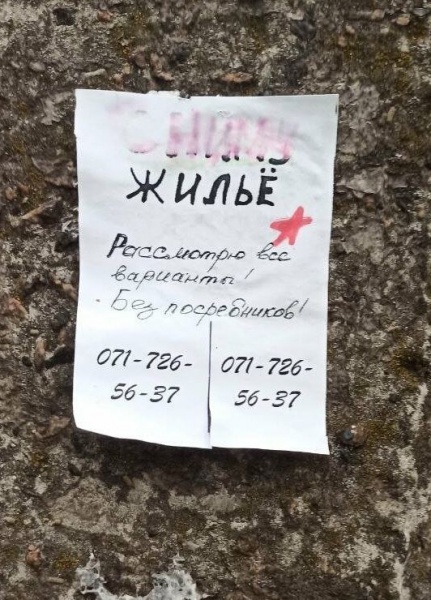 СНИМУ
ЖИЛЬЁ
Рассмотрю все
варианты!
Без посредников!
071-726- 071-726-
56-37 56-37